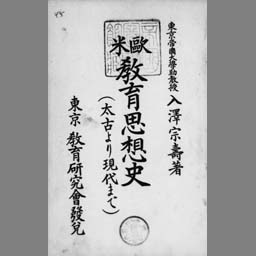 東京帝國大學助教授 入澤宗壽著
歐米
教育思想史
(太古より現代まで)
東京 教育研究會發兌